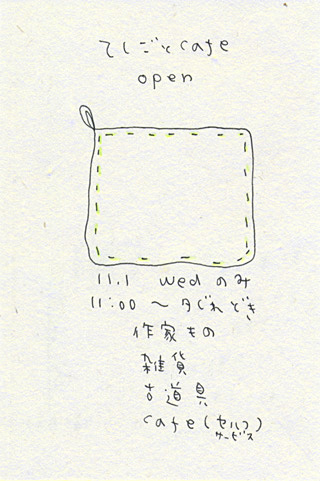 てしごとcafe
open
11.1 Wed のみ
11:00 〜 夕ぐれどき
作家もの
雑貨
古道具
cafe(セルフサービス)